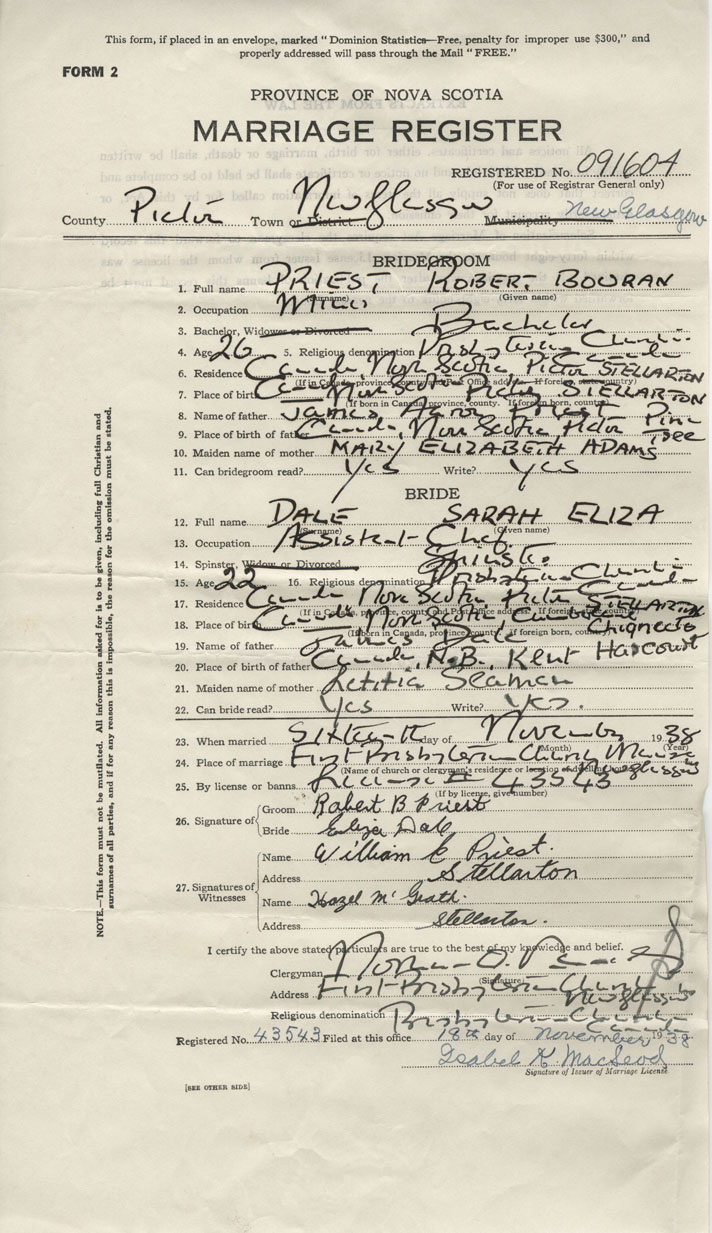 This form, if placed in an envelope, marked "Dominion Statistics—Free, penalty for improper use $300," and
properly addressed will pass through the Mail "FREE."
FORM 2
PROVINCE OF NOVA SCOTIA
MARRIAGE REGISTER
REGISTERED No. 091604
(For use of Registrar General only)
County Pictou Town or District New Glasgow Municipality New Glasgow
BRIDEGROOM
1. Full name PRIEST ROBERT BOWRAN
(Surname) (Given name)
2. Occupation Miner
3. Bachelor, Widower or Divorced Bachelor
4. Age 26 5. Religious denomination Presbyterian Church in Canada
6. Residence Canada, Nova Scotia, Pictou STELLARTON
(If in Canada, province, county and Post Office address. If foreign state country)
7. Place of birth Canada Nova Scotia Pictou STELLARTON
(If born in Canada, province, county. If foreign born, country)
8. Name of father James Aaron Priest
9. Place of birth of father Canada, Nova Scotia Pictou Pine Tree
10. Maiden name of mother MARY ELIZABETH ADAMS
11. Can bridegroom read? Yes Write? Yes
BRIDE
12. Full name DALE SARAH ELIZA
(Surname) (Given name)
13. Occupation Assistant Chef
14. Spinster, Widow or Divorced Spinster
15. Age 22 16. Religious denomination Presbyterian Church in Canada
17. Residence Canada Nova Scotia Pictou STELLARTON
(If in Canada, province, county and Post Office address. If foreign, country)
18. Place of birth Canada Nova Scotia Cumberland Chignecto
(If born in Canada, province, county. If foreign born, country)
19. Name of father James Dale
20. Place of birth of father Canada, N.B., Kent Harcourt
21. Maiden name of mother Letitia Seaman
22. Can bride read? Yes Write? Yes.
23. When married Sixteenth day of November 1938
(Month) (Year)
24. Place of marriage First Presbyterian Church Manse New Glasgow
(Name of church or clergyman's residence or location of dwelling)
25. By license or banns License 43543
(If by license, give number)
26. Signature of Groom Robert B Priest
Bride Eliza Dale
27. Signatures of Witnesses
Name William E Priest.
Address Stellarton
Name Hazel McGrath.
Address Stellarton.
I certify the above stated particulars are true to the best of my knowledge and belief.
Clergyman Norman D.
(Signature)
Address First Presbyterian Church New Glasgow
Religious denomination Presbyterian Church in Canada
Registered No. 43543 Filed at this office 18th day of November 1938
Isabel K. MacLeod
Signature of Issuer of Marriage License
[SEE OTHER SIDE]
NOTE.—This form must not be mutilated. All information asked for is to be given, including full Christian and
surnames of all parties, and if for any reason this is impossible, the reason for the omission must be stated.